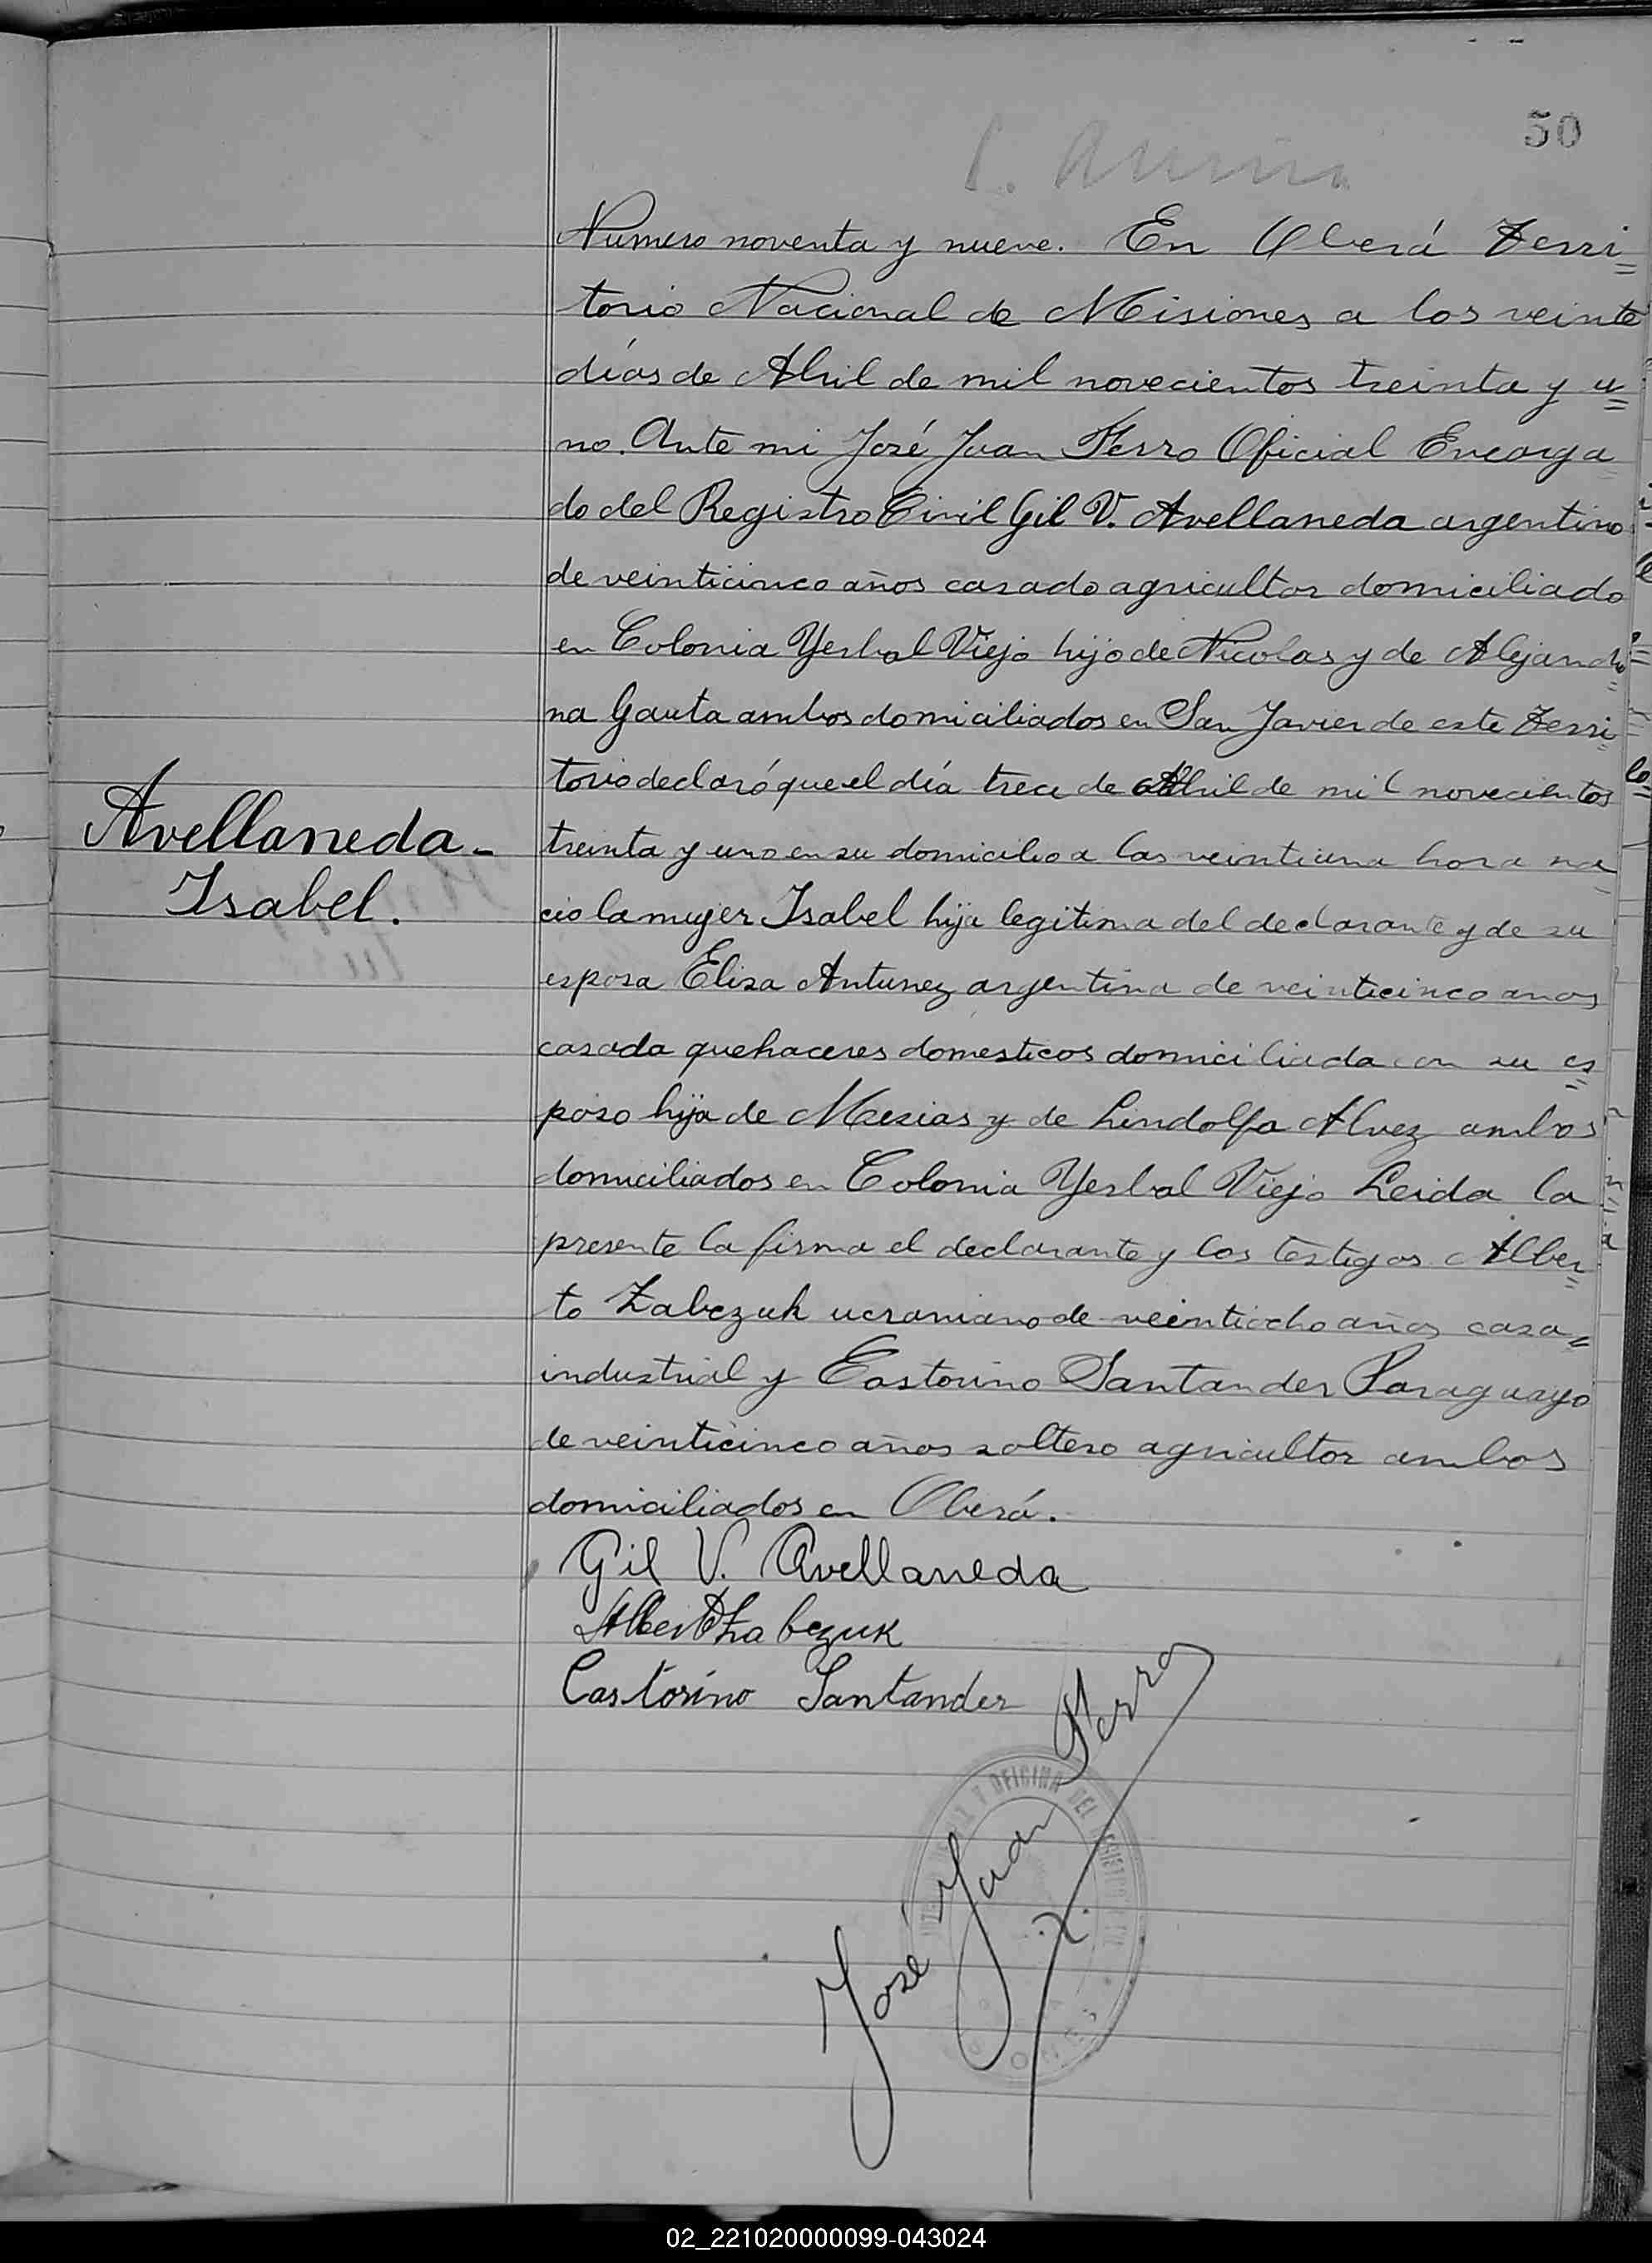 50
Numero noventa y nueve. En Oberá Terri=
torio Nacional de Misiones a los veinte
días de Abril de mil novecientos treinta y u=
no. Ante mi José Juan Ferro Oficial Encarga
do del Registro Civil Gil V. Avellaneda argentino
de veinticinco años casado agricultor domiciliado
en Colonia Yerbal Viejo hijo de Nicolas y de Alejandri=
na Gauta ambos domiciliados en San Javier de este Terri=
torio declaró que el día trece de Abril de mil novecientos
Avellaneda-
Isabel.
treinta y uno en su domicilio a las veintiuna hora na
cio la mujer Isabel hija legitima del declarante y de su
esposa Elisa Antunez argentina de veinticinco anos
casada quehaceres domesticos domiciliada con su es=
poso hija de Mesias y de Lindolfa Alvez ambos
domiciliados en Colonia Yerbal Viejo Leida la
presente la firma el declarante y los testigos Alber=
to Zabczuk ucraniano de veintiocho años casa=
industrial y Castorino Santander Paraguayo
de veinticinco años soltero agricultor ambos
domiciliados en Oberá.
Gil V. Avellaneda
Castorino Santander
José Juan Ferro
OFICINA DEL
02_221020000099-043024